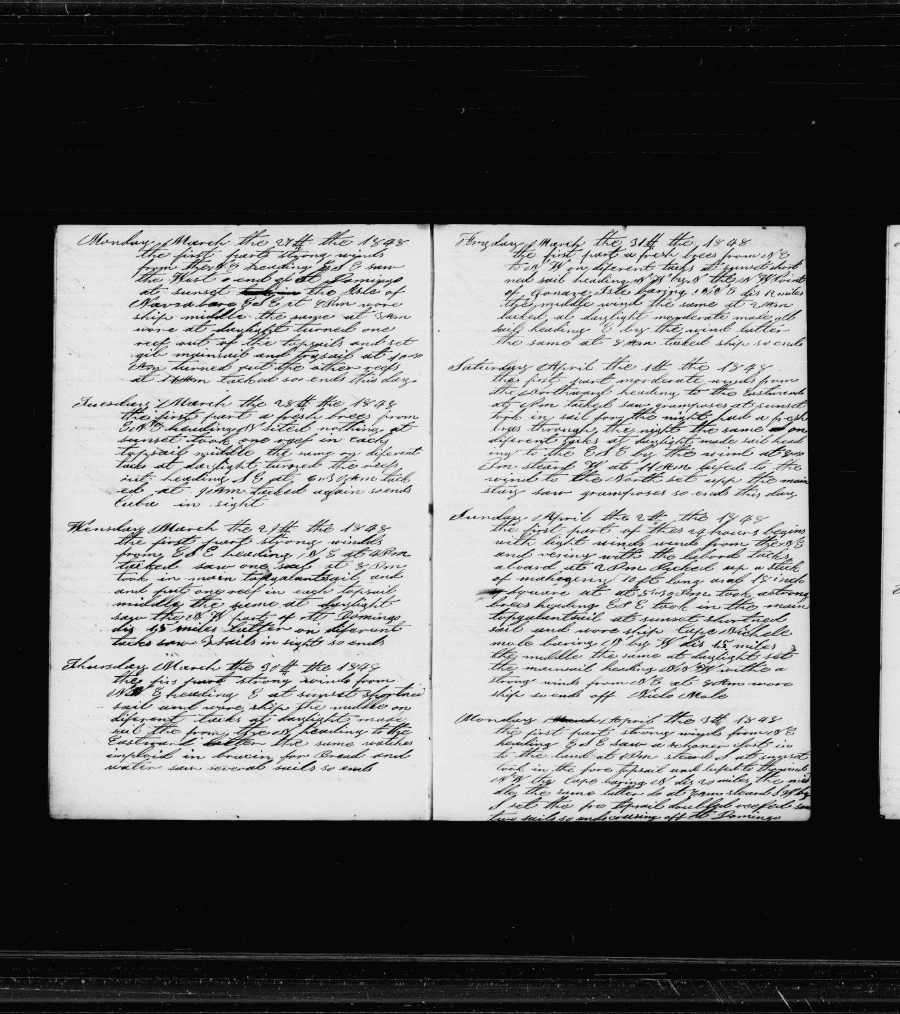 Monday March the 27th the 1848
the first part strong winds
from the NE heading ESE saw
the West end of St Domingo
at sunset the Isle of
Navza bore ESE at 8 Pm wore
ship middle the same at 3 Am
wore at daylight turned one
reef out of the topsails and set
gib mainsail and trysail at 10
Am turned out the other reefs
at 11 Am tacked soo ends this day
Tuesday March the 28th the 1848
the first part a fresh brees from
ENE heading N sited nothing at
sunset took one reef in each
topsail middle the same on diferent
tacks at daylight turned the reef
out heading SE at 6 Am tack
ed at 9 Am tacked again so ends
Cuba in sight
Wensday March the 29th the 1848
the first part strong winds
from ESE heading NE at 4 Pm
tacked saw one sail at 8 Pm
took in main topgalantsail and
and put one reef in each topsail
middle the same at daylight
saw the NW part of St Domingo
dis 15 miles latter on diferent
tacks saw 3 sails in sight so ends
Thursday March the 30th the 1848
the firs part strong winds from
NE heading E at sunset shortned
sail and wore ship the middle on
diferent tacks at daylight made
sail the from the N heading to the
Eastward latter the same watches
imploid in brucin for Bread and
water saw several sails so ends
Fryday March the 31th the 1848
the first part a fresh brees from NE
to NW on diferent tacks at sunset short
ned sail heading N by N the W Point
of Gonave Isle baring dis 12 miles
the middle wind the same at 2 Am
tacked at daylight morderate made all
sail heading E by the wind latter
the same at 8 Am tacked ship so ends
Saturday April the 1th the 1848
the first part morderate winds from
the Northward heading to the Eastward
at 4 Pm tacked saw gramposes at sunset
took in sail for the night had a fresh
brees through the night the same on
diferent tacks at daylight made sail head
ing to the ESE by the wind at
Am steard W at 11 Am lufed to the
wind to the North set upp the main
stay saw gramposes so ends this day
Sunday April the 2th the 1848
the first part of thes 24 hours begins
with light winds winds from the NE
and vering with the labord tacks
aboard at 2 Pm Picked up a stick
of mahogeny 10 ft long and 15 inch
square at at 5 Pm took a strong
brees heading ESE took in the main
topgalantsail at sunset shortned
sail and wore ship Cape Nichole
mole baring N by W dis 15 miles
the middle the same at daylight set
the mainsail heading NNW with a
strong wind from NE at 8 Am wore
ship so ends off Nicle Mole
Monday April the 3th 1848
the first part strong winds from NE
heading ESE saw a schoner clost in
to the land at 1 Pm steard S at sunset
took in the fore topsail and lufed to the wind
NW the Cape baring N dis 20 miles the mid
dle the same latter do at 7 Am steard
S set the fore topsail reefed saw
two sails so ends crusing off St Domingo